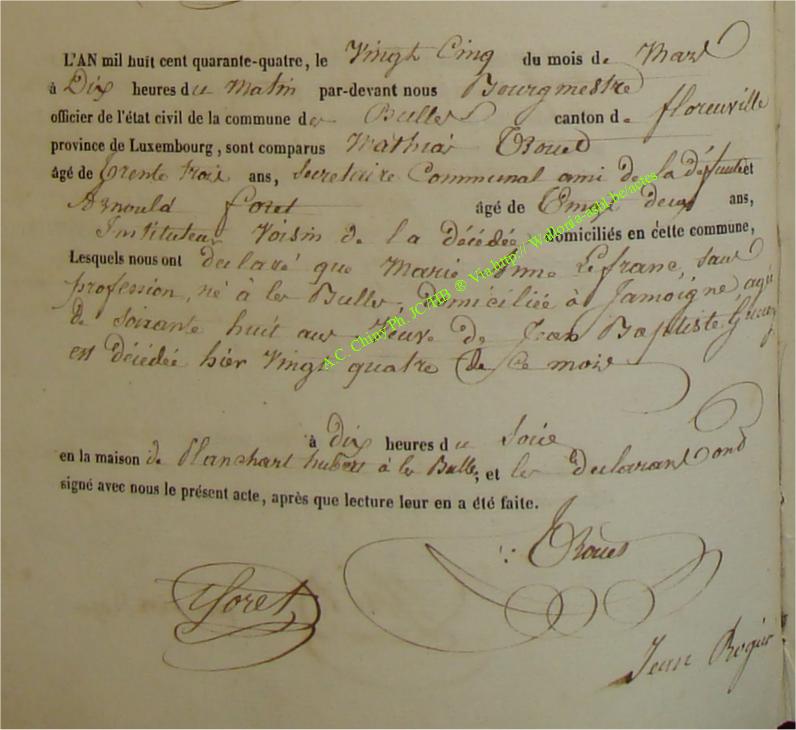 L'AN mil huit cent quarante-quatre, le Vingt Cinq du mois de Mars
à Dix heures du Matin par-devant nous Bourgmestre
officier de l'état civil de la commune des Bulles canton de florenville
province de Luxembourg, sont comparus Mathias
âgé de trente trois ans, Secretaire Communal ami de la défunte et
Arnould foret âgé de deux ans,
Instituteur Voisin de la décédée domiciliés en cette commune,
Lesquels nous ont declaré que Marie Anne Lefranc, sans
profession, né à les Bulles, domiciliée à Jamoigne, agée
de soixante huit ans Veuve de Jean Baptiste
est décédée hier Vingt quatre de ce mois
à Dix heures du Soir
en la maison de Planchart hubert à les Bulle, et les declarant ond
signé avec nous le présent acte, après que lecture leur en a été faite.
foret
Jean Rogier
A.C. Chiny Ph. JC/HB ® Via http:// Walonia-asbl.be/actes